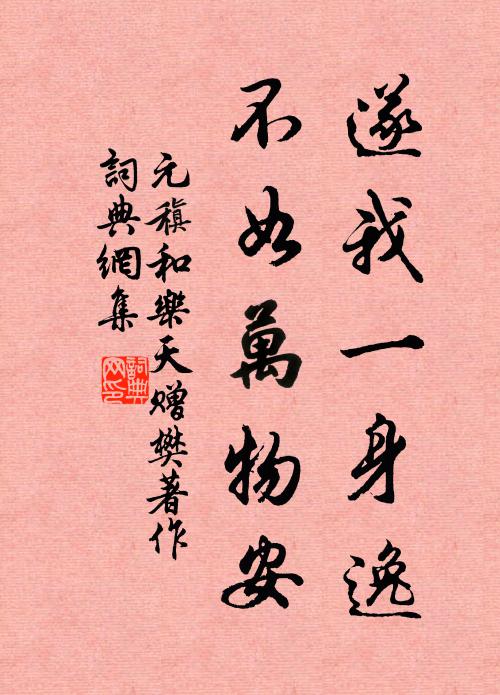 遂我一身逸
不如萬物安
元稹和樂天贈樊著作
詞典網集
詞典網印